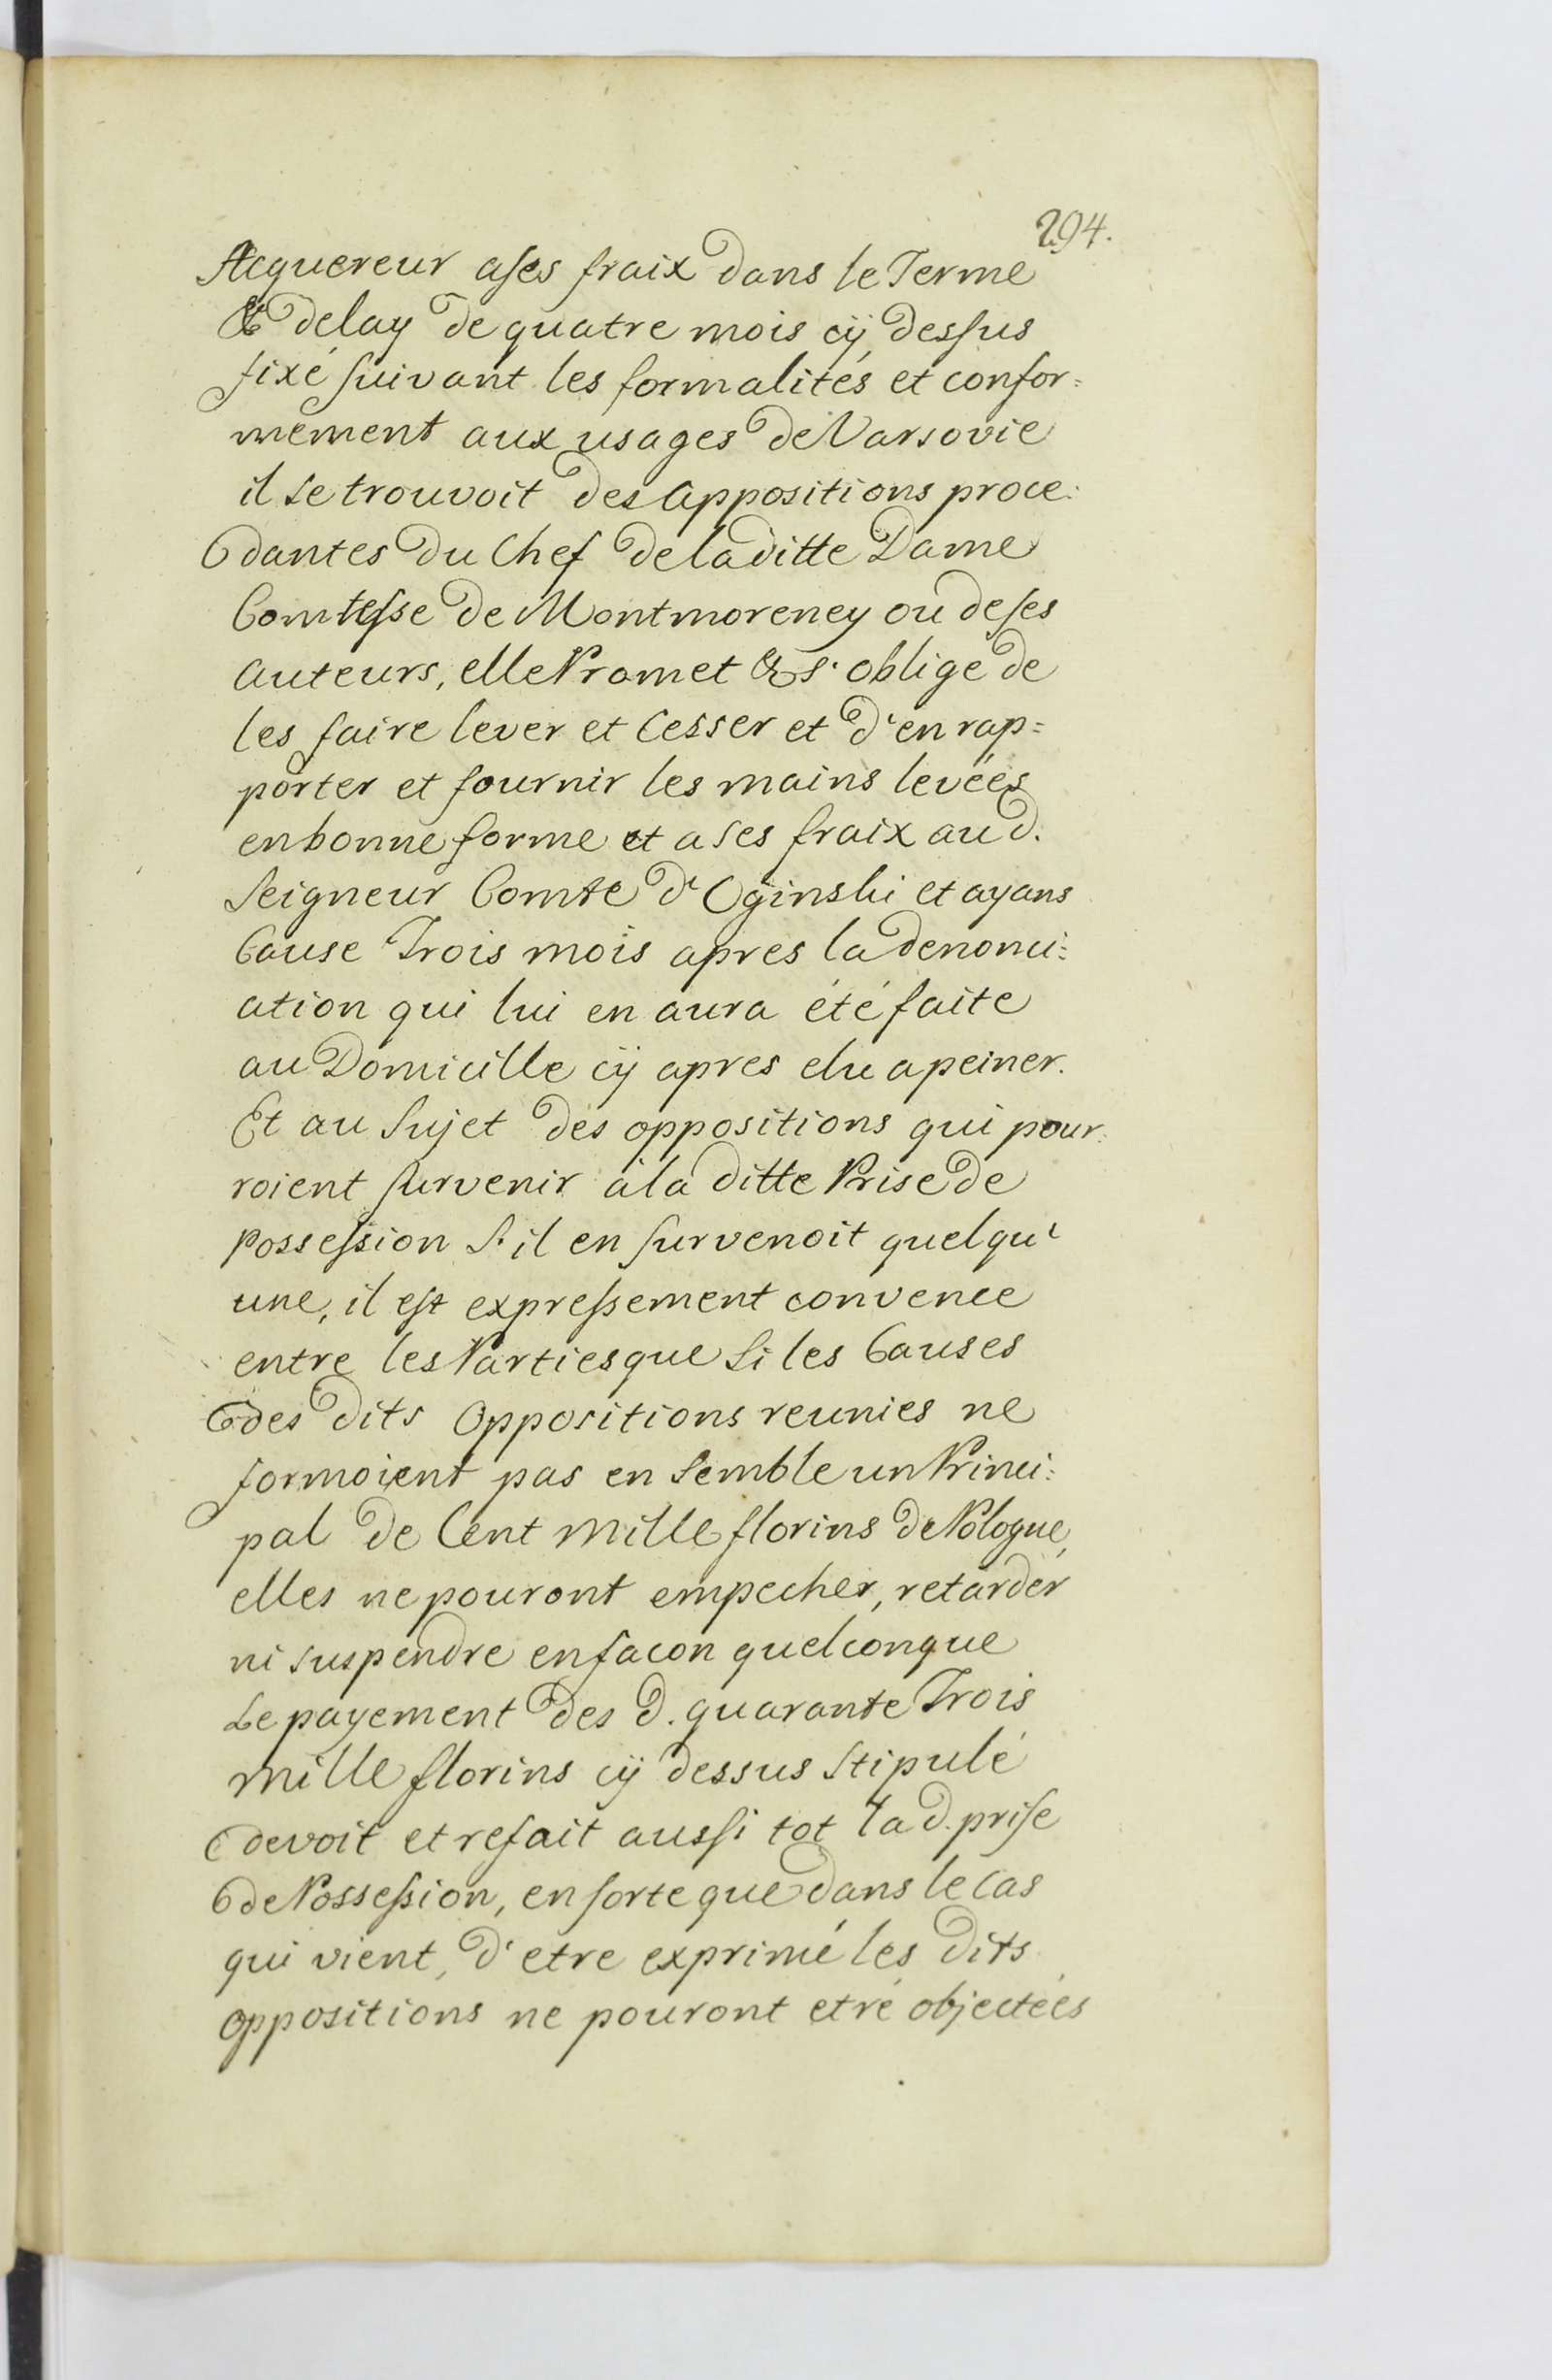 294.
Acquereur a ses fraix dans le Terme
& delay de quatre mois cÿ dessus
fixé suivant les formalités et confor=
mement aux usages de Varsovie
il se trouvoit des appositions proce=
dantes du Chef de la ditte Dame
Comtesse de Montmorency ou de ses
auteurs, elle Promet & s'oblige de
les faire lever et Cesser et d'en rap=
porter et fournir les mains levées
en bonne forme et a ses fraix au d.
Seigneur Comte d'Oginski et ayans
Cause Trois mois apres la denonci=
ation qui lui en aura été faite
au Domicille cÿ apres elu a peiner.
Et au Sujet des oppositions qui pour=
roient survenir à la ditte Prise de
possession S'il en survenoit quelqu'
une, il est expressement convenee
entre les Parties que Si les Causes
des dits Oppositions reunies ne
formoient pas en Semble un Princi=
pal de Cent Mille florins de Pologne,
elles ne pouront empecher, retarder
ni suspendre en facon quelconque
Le payement des d. quarante Trois
Mille florins cÿ dessus Stipulé
devoit et refait aussi tot la d. prise
de Possession, en sorte que dans le Cas
qui vient, d'etre exprimé les dits
oppositions ne pouront etre objectées